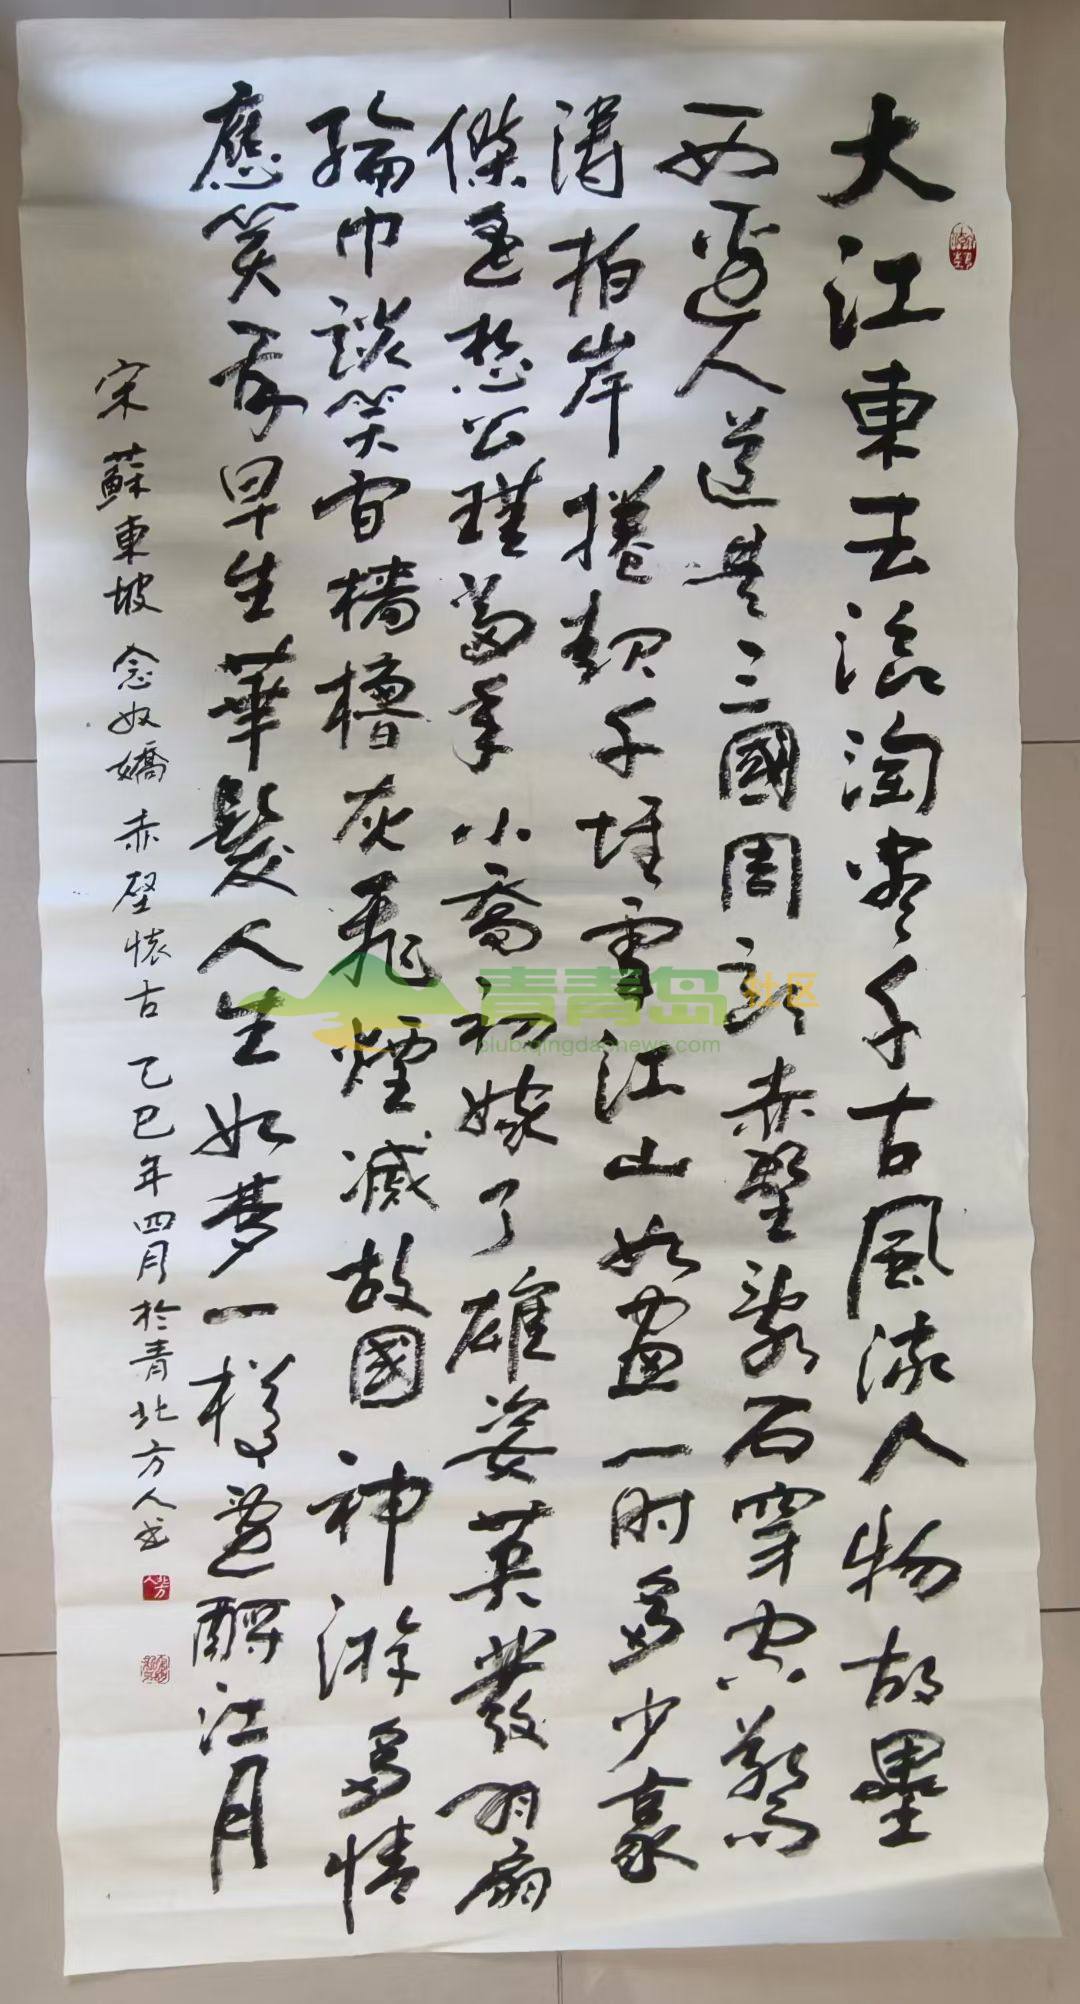 大江東去浪淘盡千古風流人物故壘
西邊人道是三國周郎赤壁亂石穿空驚
濤拍岸捲起千堆雪江山如畫一時多少豪
傑遙想公瑾當年小喬初嫁了雄姿英發羽扇
綸巾談笑間檣櫓灰飛煙滅故國神游多情
應笑我早生華髮人生如夢一樽還酹江月
宋蘇東坡念奴嬌赤壁懷古乙巳年四月於青北方人書
北方人
青青岛社区
club.qingdaonews.com